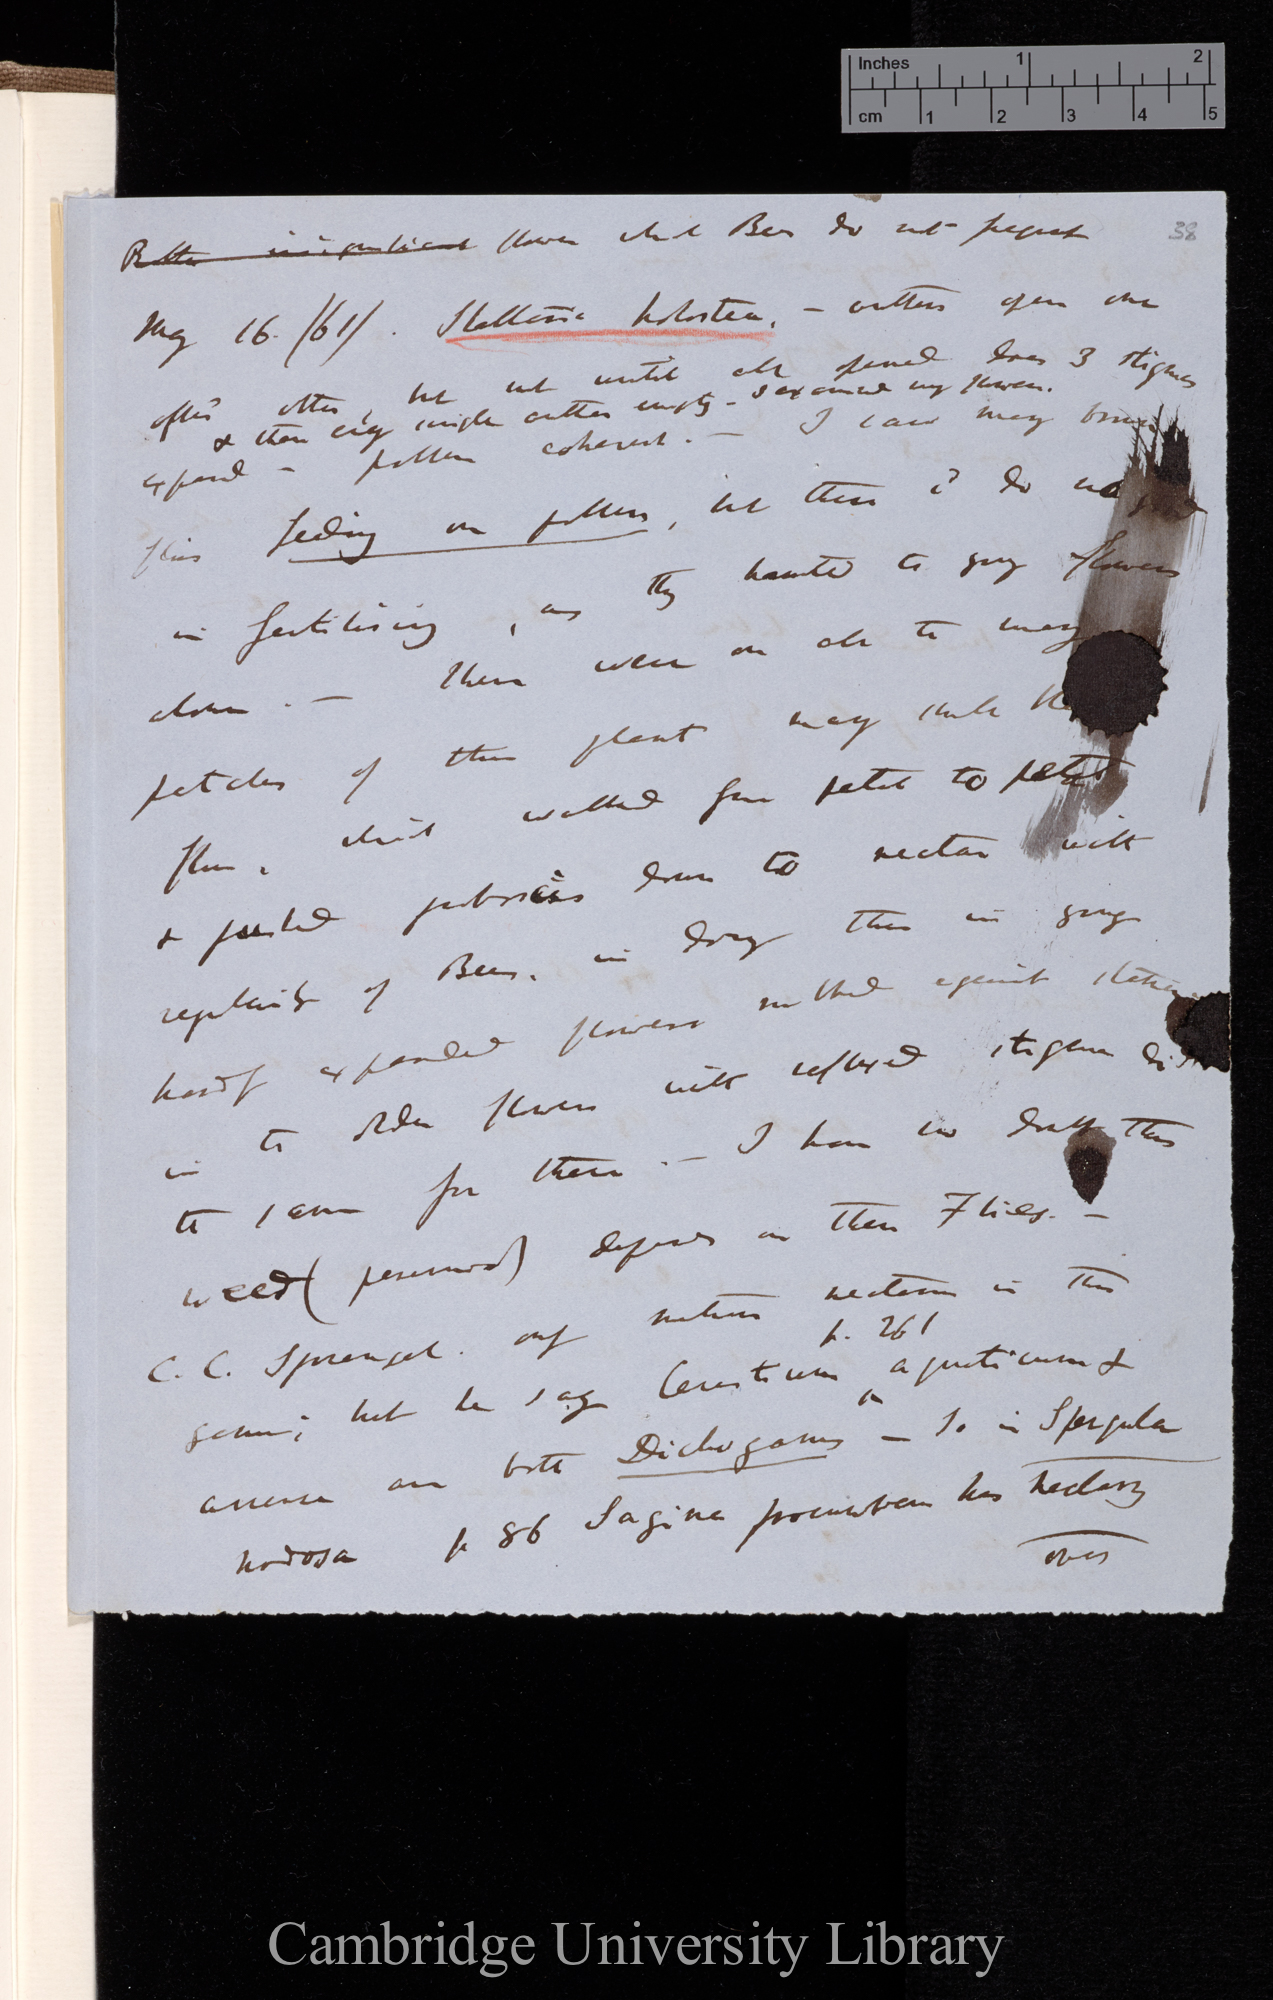 Inches 1 2
cm 1 2 3 4 5
38
Rather insignificant flower which Bees do not frequent
May 16. /61/. Stellaria holostea, — anthers open one
after other, but not until all opened does 3 stigmas
& then every single anther empty — I examined many flowers.
expand — pollen coherent. — I saw many
flies feeding on pollen, but these do no good
in fertilising, as they haunted to young flowers
alone. — There were on all the many
patches of this plant many
flies, which walked from petal to petal
& pushed proboscis down to nectar with
regularity of Bees. in doing this in young
hardly expanded flowers rubbed against
in the older flowers with reflexed stigma did
the same for them. — I have no doubt this
weed (perennial) depends on these Flies. —
C. C. Sprengel. only notices nectaries in this
p. 261
genus; but he says Cerastium aquaticum &
arvense are both Dichogamous — So in Spergula
nodosa p 86 Sagina procumbens has nectary
over
Cambridge University Library